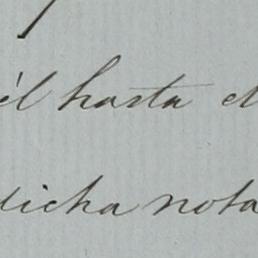 él hasta el
dicha nota